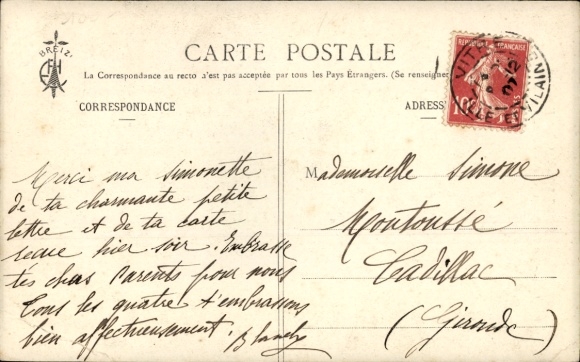 BREIZ
CARTE POSTALE
La Correspondance au recto n'est pas acceptée par tous les Pays Étrangers. (Se renseigner
CORRESPONDANCE
ADRESS
Merci ma Simonette
de ta charmante petite
lettre et de ta carte
recue hier soir. Embrasse
tes chers Parents pour nous
Tous les quatre t'embrassons
bien affectueusement. Blanche
Mademoiselle Simone
Montoussé
Cadillac
(Gironde)
10
VILAINE